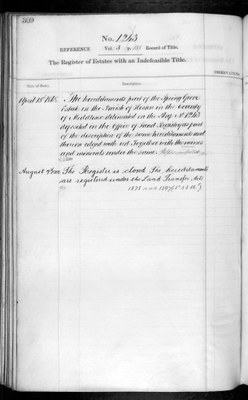 No. 1243
REFERENCE Vol. Record of Title.
The Register of Estates with an Indefeasible Title.
Date of Entry. Description.
April The hereditaments part of the Spring Grove
Estate in the Parish of Heston in the County
of Middlesex delineated in the Map No 1243
deposited in the Office of Land Registry as part
of the description of the same hereditaments and
thereon edged with red Together with the mines
and minerals under the same
August The Register is closed The hereditaments
are registered under the Land Transfer Acts
1875 and 1897